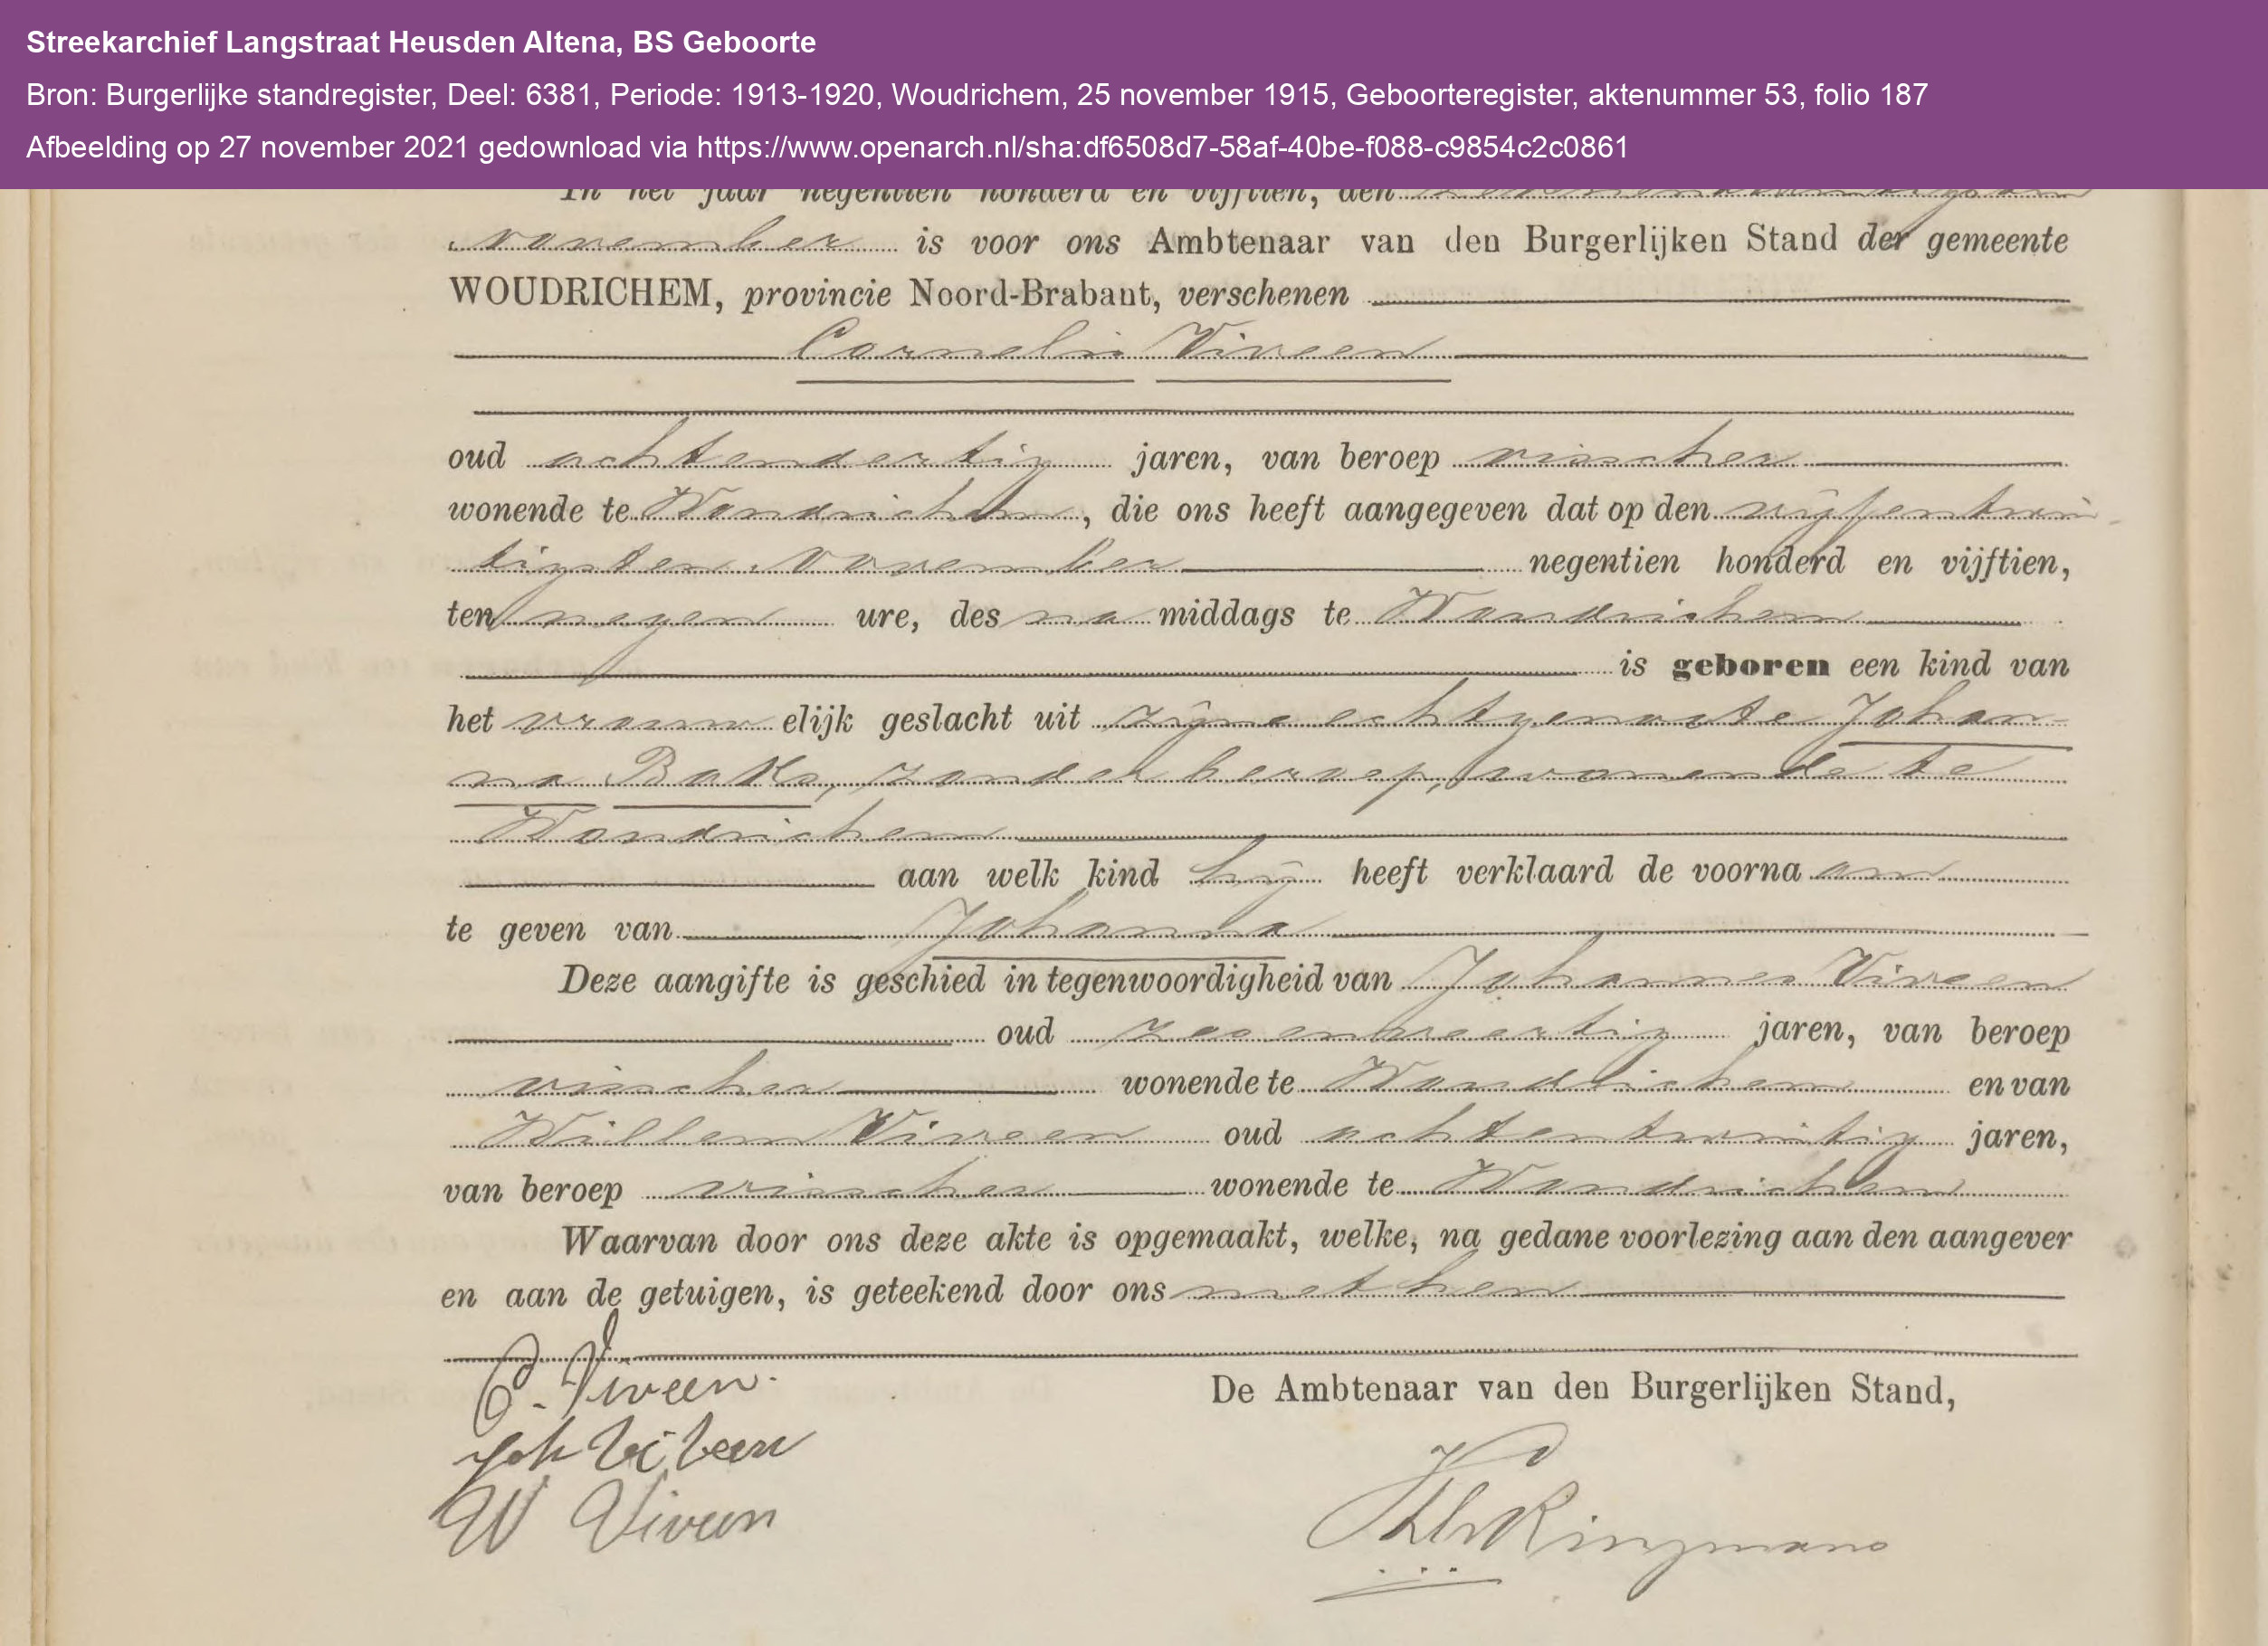 Streekarchief Langstraat Heusden Altena, BS Geboorte
Bron: Burgerlijke standregister, Deel: 6381, Periode: 1913-1920, Woudrichem, 25 november 1915, Geboorteregister, aktenummer 53, folio 187
Afbeelding op 27 november 2021 gedownload via https://www.openarch.nl/sha:df6508d7-58af-40be-f088-c9854c2c0861
In het jaar negentien honderd en vijftien, den
November is voor ons Ambtenaar van den Burgerlijken Stand der gemeente
WOUDRICHEM, provincie Noord-Brabant, verschenen
Cornelis Viveen
oud achtendertig jaren, van beroep visscher
wonende te Woudrichem, die ons heeft aangegeven dat op den vijfentwin-
tigsten November negentien honderd en vijftien,
ten negen ure, des na middags te Woudrichem
is geboren een kind van
het vrouw elijk geslacht uit zijne echtgenoote Johan-
na Baks, zonder beroep, wonende te
Woudrichem
aan welk kind hij heeft verklaard de voorna am
te geven van Johanna
Deze aangifte is geschied in tegenwoordigheid van Johannes Viveen
oud zesenveertig jaren, van beroep
visscher wonende te Woudrichem en van
Willem Viveen oud achtentwintig jaren,
van beroep visscher wonende te Woudrichem
Waarvan door ons deze akte is opgemaakt, welke, na gedane voorlezing aan den aangever
en aan de getuigen, is geteekend door ons met hen
C. Viveen.
De Ambtenaar van den Burgerlijken Stand,
Joh Viveen
W Viveen